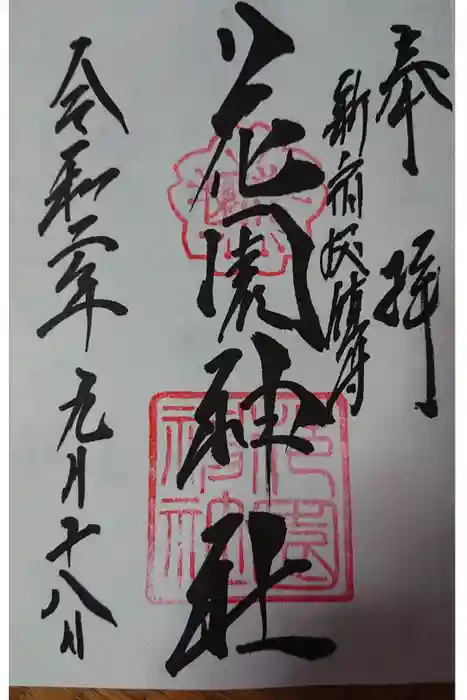 奉拝
新宿総鎮守
花園神社
令和二年九月十八日
花園神社